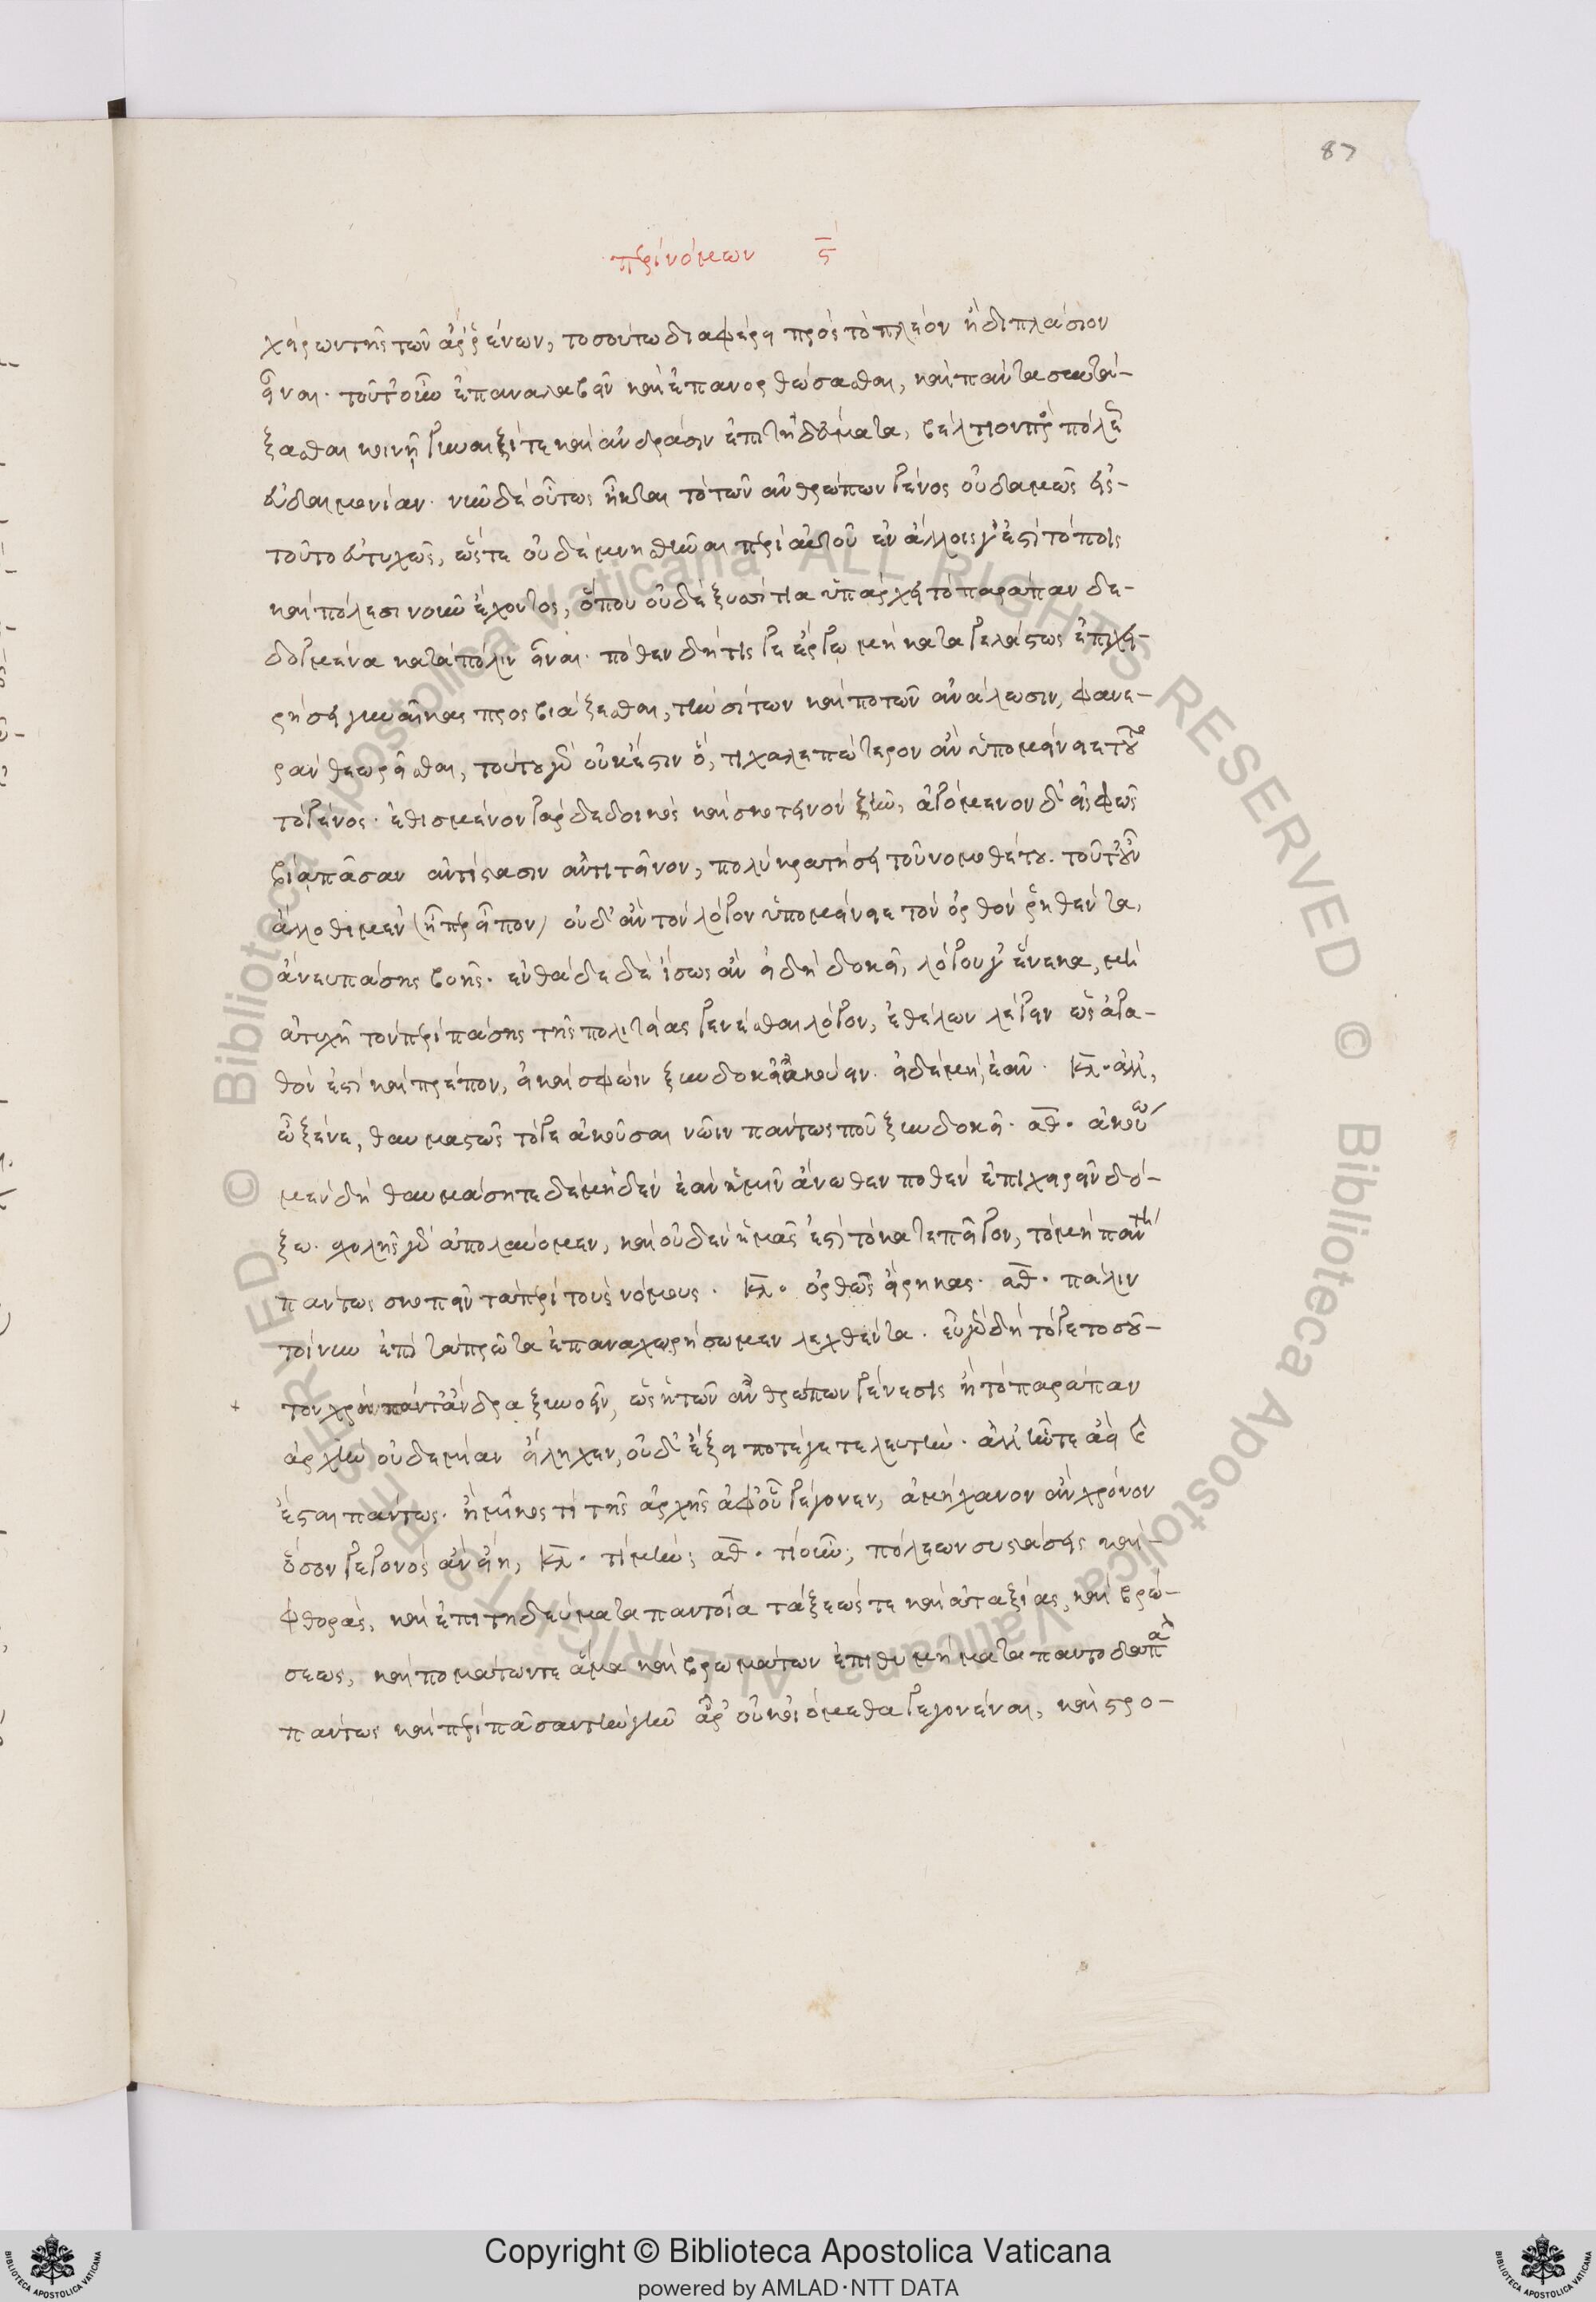 περὶ νόμων ϛ
χείρων τῆς τῶν ἀῤῥένων, τοσούτω διαφέρει πρὸς τὸ πλέον ἢ διπλάσιον
εἶναι. τοῦτ' οὖν ἐπαναλαβεῖν καὶ ἐπανορθώσασθαι, καὶ πάντα συντά-
ξασθαι κοινῇ γυναιξί τε καὶ ἀνδράσιν ἐπιτηδεύματα, βέλτιον πρὸς πόλεως
εὐδαιμονίαν. νῦν δὲ οὕτως ἦκται τὸ τῶν ἀνθρώπων γένος οὐδαμῶς εἰς-
τοῦτο εὐτυχῶς, ὥστε οὐδὲ μνησθῆναι περὶ αὐτοῦ ἐν ἄλλοις γ' ἐστὶ τόποις
καὶ πόλεσι νοῦν ἔχοντος, ὅπου οὐδὲ ξυσσίτια ὑπάρχει τὸ παράπαν δε-
δογμένα κατὰ πόλιν εἶναι. πόθεν δή τις γε ἔργῳ μὴ καταγελάστως ἐπιχει-
ρήσει γυναῖκας προσβιάζεσθαι, τὴν σίτων καὶ ποτῶν ἀνάλωσιν, φανε-
ρὰν θεωρεῖσθαι, τούτου γὰρ οὐκ ἔστιν ὅ, τι χαλεπώτερον ἂν ὑπομείνειε τοῦτο
τὸ γένος. ἐθισμένον γὰρ δεδοικὸς καὶ σκοτεινὸν ζῆν, ἀγόμενον δ' εἰς φῶς
βίᾳ πᾶσαν ἀντίστασιν ἀντιτεῖνον, πολὺ κρατήσει τοῦ νομοθέτου. τοῦτ' οὖν
ἄλλοθι μὲν (ᾗπερ εἶπον) οὐδ' ἂν τὸν λόγον ὑπομείνειε τὸν ὀρθὸν ῥηθέντα,
ἄνευ πάσης βοῆς. ἐνθάδε δὲ ἴσως ἂν εἰ δὴ δοκεῖ, λόγου γ' ἕνεκα, μὴ
ἀτυχῆ τὸν περὶ πάσης τῆς πολιτείας γενέσθαι λόγον, ἐθέλων λέγειν ὡς ἀγα-
θόν ἐστι καὶ πρέπον, εἰ καὶ σφῷν ξυνδοκεῖ ἀκούειν. εἰ δὲ μή, ἐᾶν. Κλ. ἀλλ',
ὦ ξένε, θαυμαστῶς τόγε ἀκοῦσαι νῶϊν πάντως που ξυνδοκεῖ. ἀθ. ἀκούω
μὲν δὴ θαυμάσητε δὲ μηδὲν ἐὰν ἡμῖν ἄνωθέν ποθεν ἐπιχειρεῖν δό-
ξω. σχολῆς γὰρ ἀπολαύομεν, καὶ οὐδὲν ἡμᾶς ἐστὶ τὸ κατεπεῖγον, τὸ μὴ πάντη
πάντως σκοπεῖν τὰ περὶ τοὺς νόμους. Κλ. ὀρθῶς εἴρηκας. ἀθ. πάλιν
τοίνυν ἐπὶ τὰ πρῶτα ἐπαναχωρήσωμεν λεχθέντα. εὖ γὰρ δὴ τόγε τοσοῦ-
τον χρὴ πάντ' ἄνδρα ξυνοεῖν, ὡς ἡ τῶν ἀνθρώπων γένεσις ἢ τὸ παράπαν
ἀρχὴν οὐδεμίαν εἴληχεν, οὐδ' ἕξει ποτέ γε τελευτήν. ἀλλ' ἦν τε ἀεὶ καὶ
ἔσται πάντως. ἢ μῆκός τι τῆς ἀρχῆς ἀφ' οὗ γέγονεν, ἀμήχανον ἂν χρόνον
ὅσον γεγονὸς ἂν εἴη, Κλ. τί μήν; ἀθ. τί οὖν; πόλεων συστάσεις καὶ-
φθοράς, καὶ ἐπιτηδεύματα παντοῖα τάξεώς τε καὶ ἀταξίας, καὶ βρώ-
σεως, καὶ πομάτων τε ἅμα καὶ βρωμάτων ἐπιθυμήματα παντοδαπὰ
πάντως καὶ περὶ πᾶσαν τὴν γῆν ἆρ' οὐκ οἰόμεθα γεγονέναι, καὶ στρο-
87
Copyright © Biblioteca Apostolica Vaticana
powered by AMLAD·NTT DATA